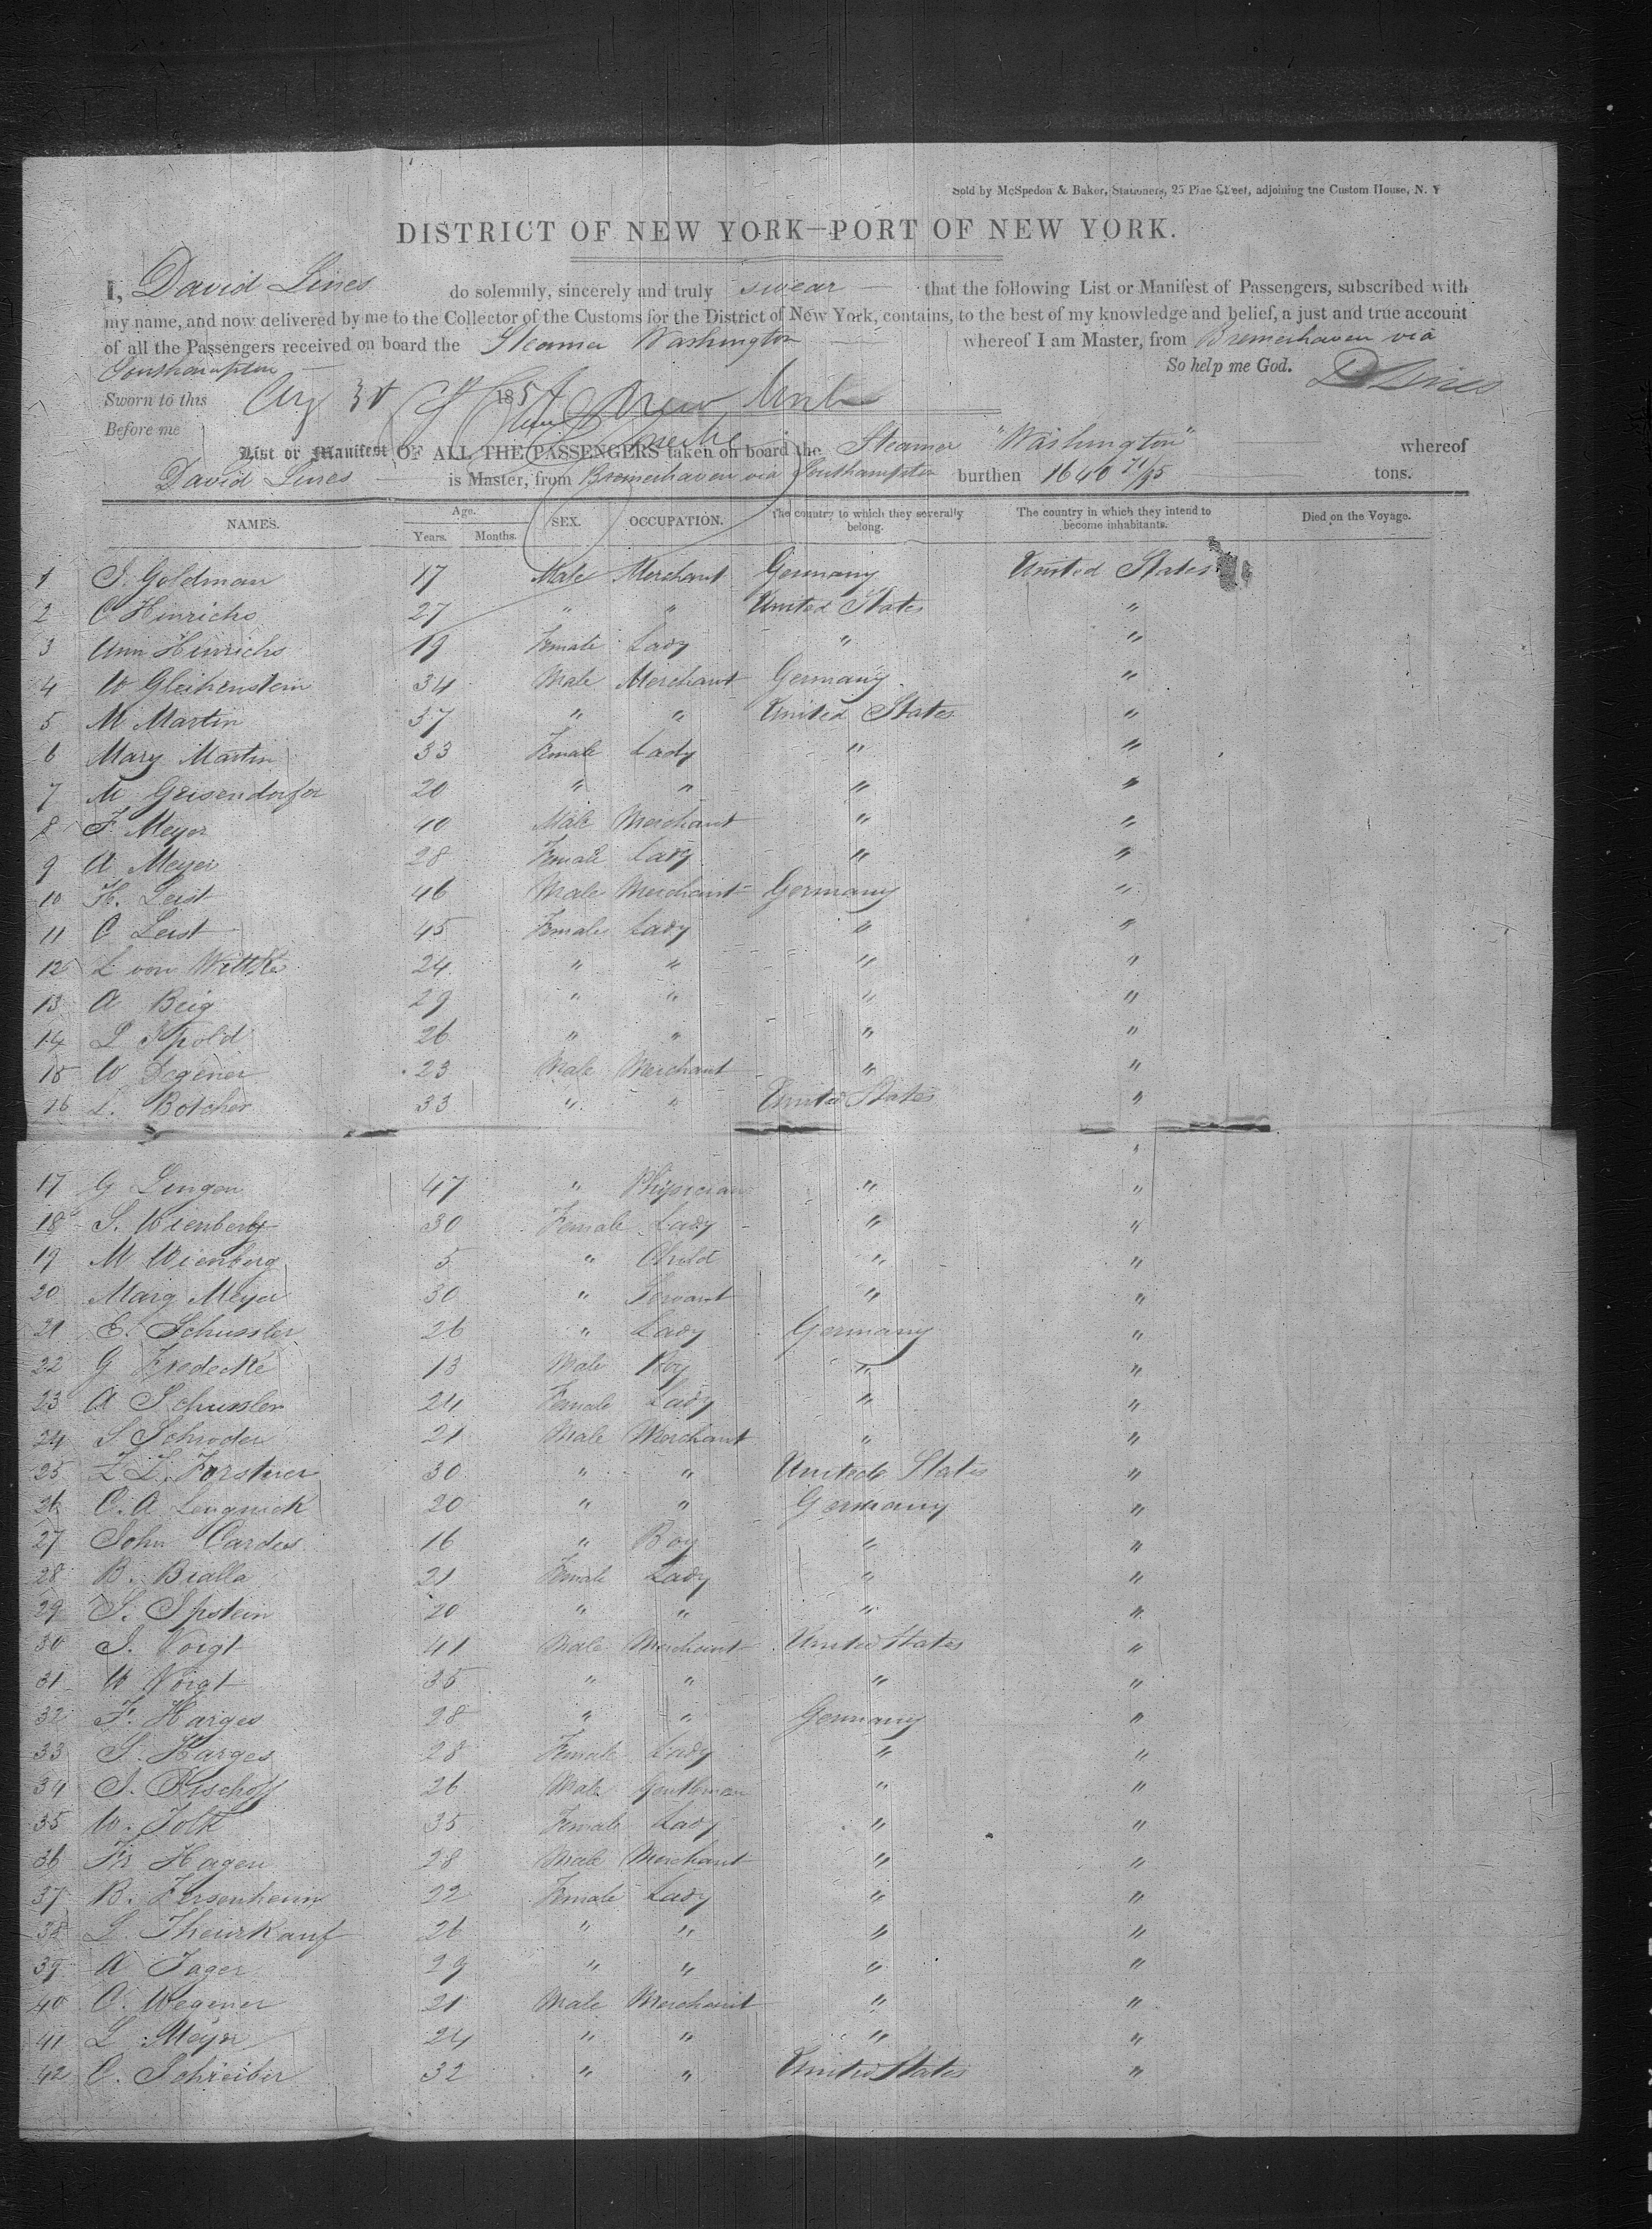 Sold by McSpedon & Baker, Stationers, 25 Pine Street, adjoining the Custom House, N. Y
DISTRICT OF NEW YORK—PORT OF NEW YORK.
I, David Lines do solemnly, sincerely and truly swear that the following List or Manifest of Passengers, subscribed with
my name, and now delivered by me to the Collector of the Customs for the District of New York, contains, to the best of my knowledge and belief, a just and true account
of all the Passengers received on board the Steamer Washington whereof I am Master, from Bremerhaven via
Southampton So help me God. D Lines
Sworn to this Aug 185
Before me
List or Manifest OF ALL THE PASSENGERS taken on board the Steamer "Washington" whereof
David Lines is Master, from Bremerhaven via Southampton burthen 1640 71/95 tons.
NAMES. Age. Years. Months. SEX. OCCUPATION. The country to which they severally belong. The country in which they intend to become inhabitants. Died on the Voyage.
1 S. Goldman 17 Male Merchant Germany United States
2 C Hinrichs 27 " " United States "
3 Ann Hinrichs 19 Female Lady " "
4 W Gleikenstein 34 Male Merchant Germany "
5 M Martin 37 " " United States "
6 Mary Martin 33 Female Lady " "
7 M Geisendorfer 20 " " " "
8 F Meyer 40 Male Merchant " "
9 A Meyer 28 Female Lady " "
10 H. Leist 46 Male Merchant Germany "
11 C Leist 45 Female Lady " "
12 L von Wittke 24 " " " "
13 A Beig 29 " " " "
14 L Spold 26 " " " "
15 W Degener 23 Male Merchant " "
16 L. Botcher 33 " " United States "
17 G Lingen 47 " Physician " "
18 S. Wienberg 30 Female Lady " "
19 M Wienberg 5 " Child " "
20 Marg Meyer 30 " Servant " "
21 E. Schussler 26 " Lady Germany "
22 G Fredecke 13 Male Boy " "
23 A Schussler 24 Female Lady " "
24 S Schroder 21 Male Merchant " "
25 F. L. Forstner 30 " " United States "
26 C. A Lengnick 20 " " Germany "
27 John Cardes 16 " Boy " "
28 B. Bialla 21 Female Lady " "
29 S. Spstein 20 " " " "
30 J. Voigt 41 Male Merchant United States "
31 W Voigt 35 " " " "
32 F. Harges 28 " " Germany "
33 S. Harges 28 Female Lady " "
34 J. Bischoff 26 Male Gentleman " "
35 W. Jolk 35 Female Lady " "
36 Fr Hagen 28 Male Merchant " "
37 B. Fersenheim 22 Female Lady " "
38 L Theurkauf 26 " " " "
39 A Jager 29 " " " "
40 C. Wegener 21 Male Merchant " "
41 L Meyer 24 " " " "
42 C. Schreiber 32 " " United States "